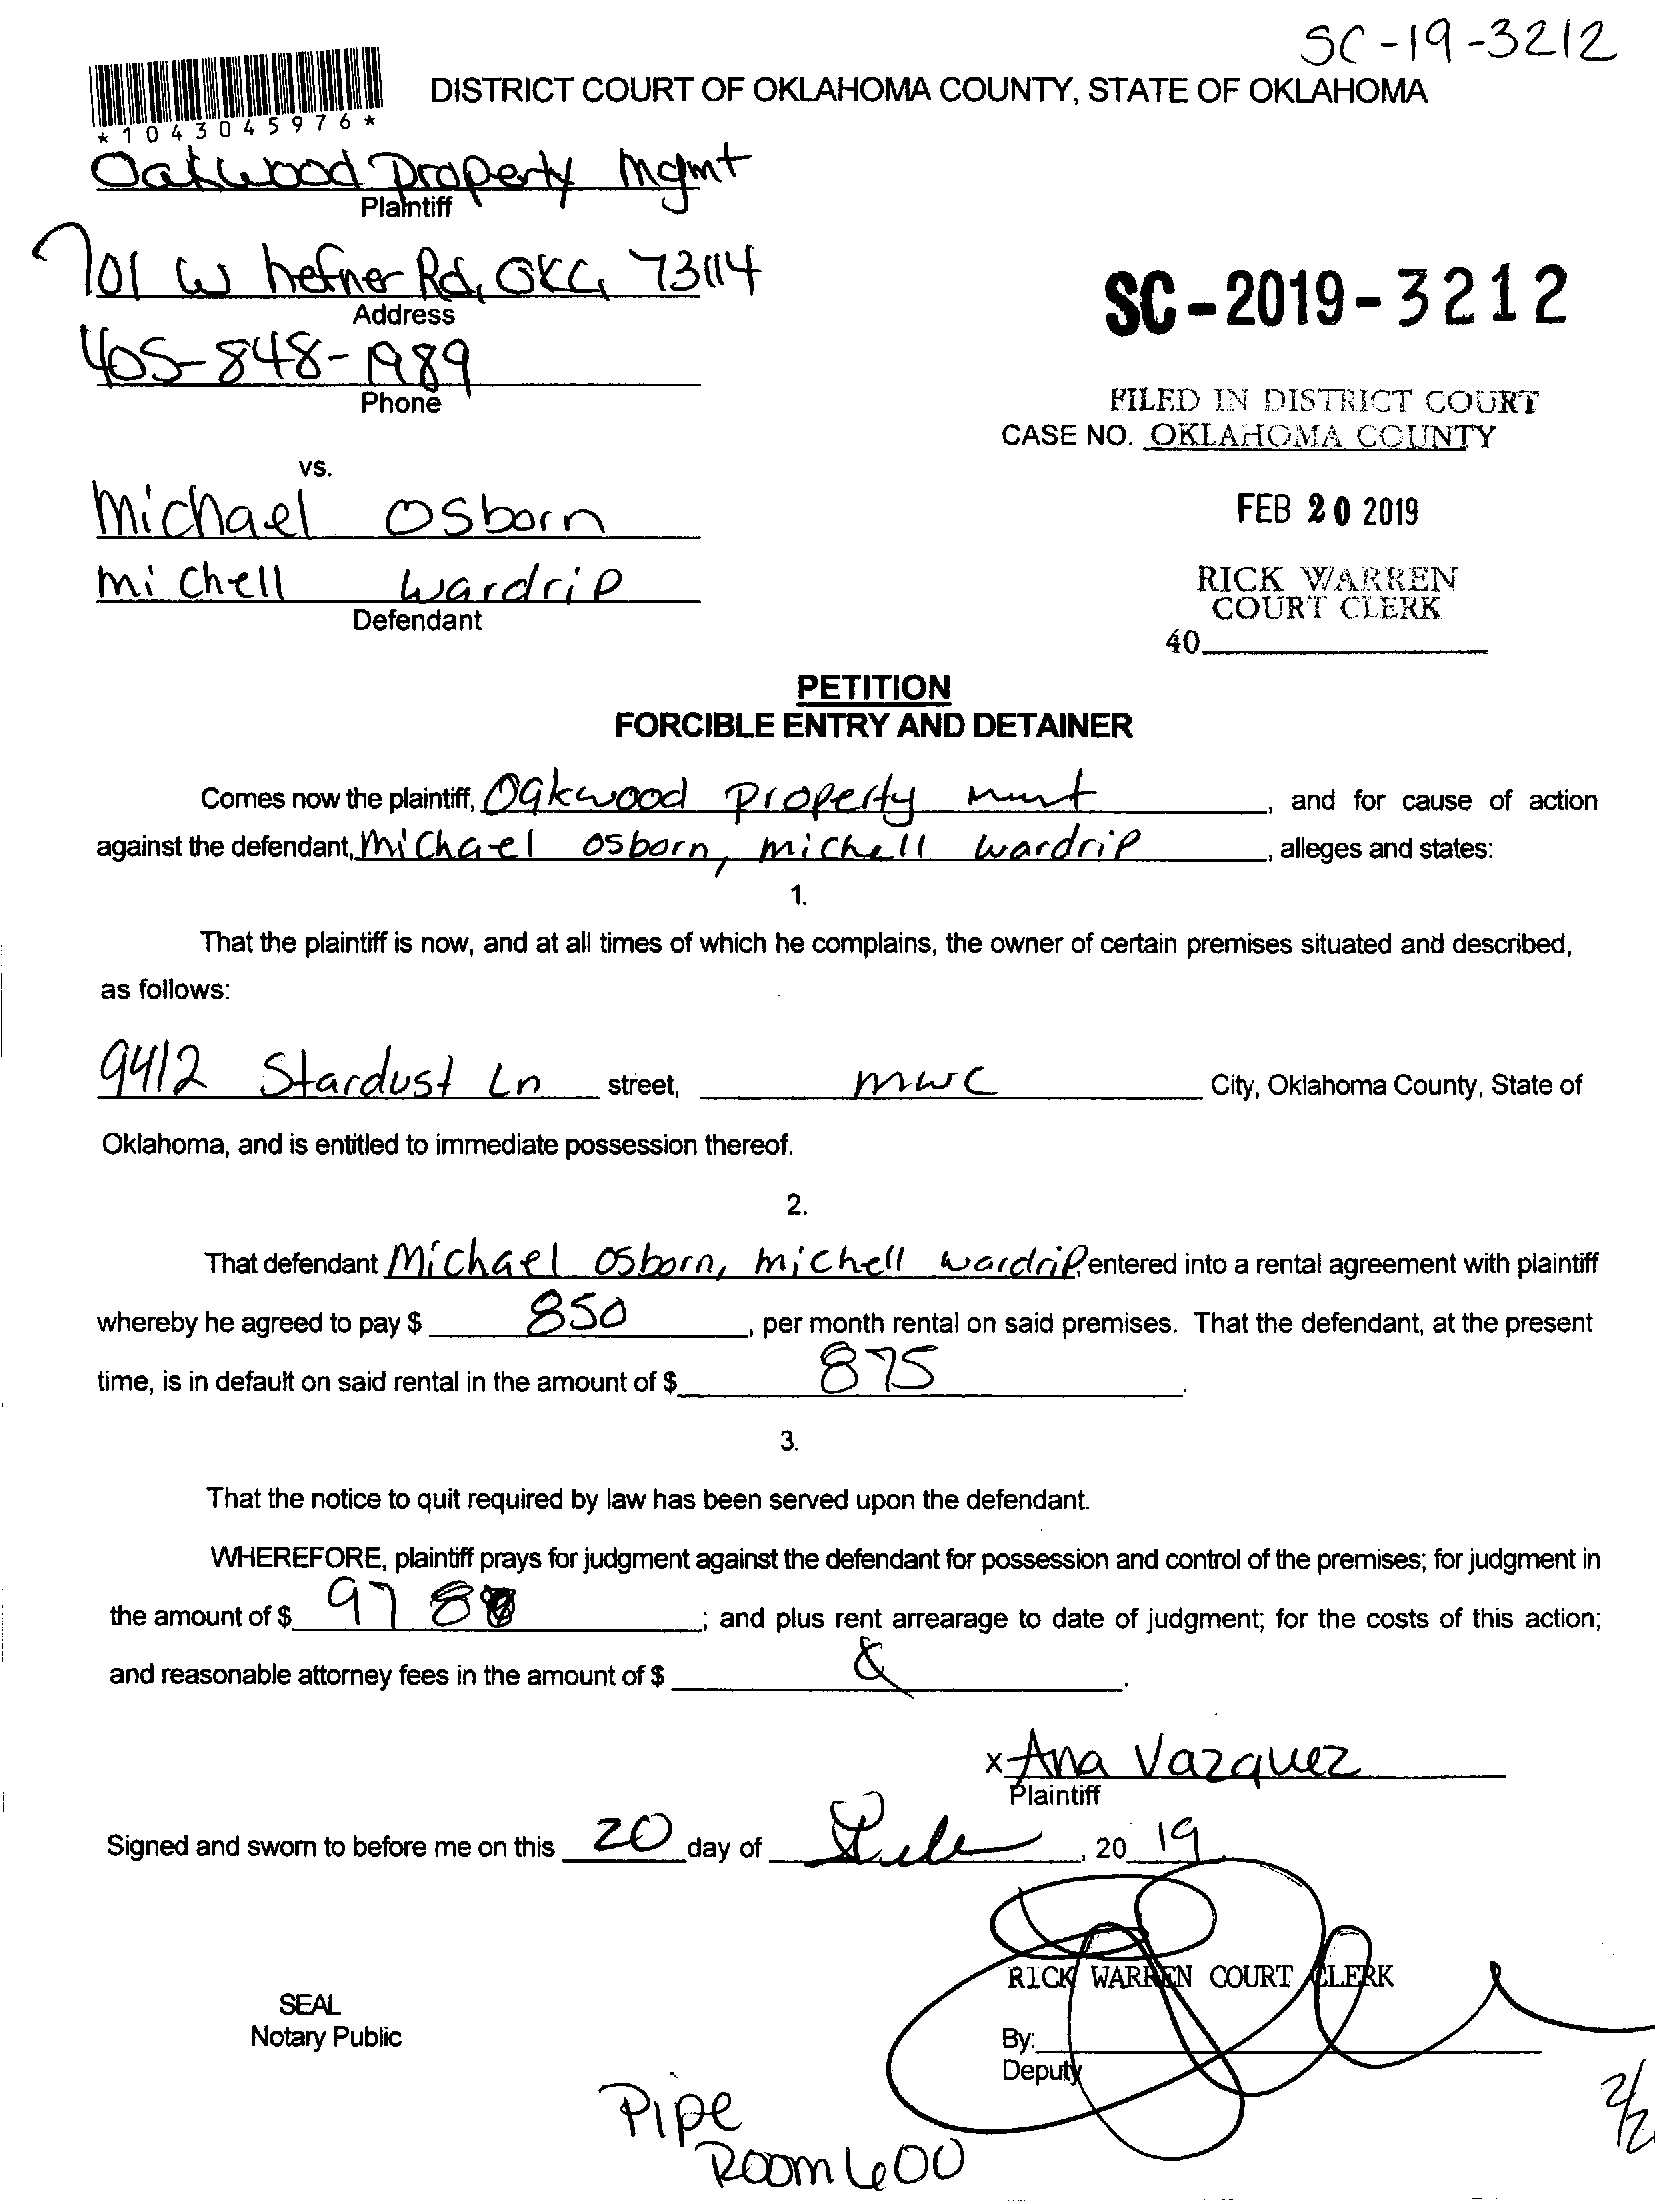 SC-19-3212
*1043045976*
DISTRICT COURT OF OKLAHOMA COUNTY, STATE OF OKLAHOMA
Oakwood Property Mgmt
Plaintiff
701 W hefner Rd, OKC, 73114
Address
405-848-1989
Phone
SC-2019-3212
FILED IN DISTRICT COURT
CASE NO. OKLAHOMA COUNTY
vs.
Michael Osborn
FEB 20 2019
Michell Wardrip
Defendant
RICK WARREN
COURT CLERK
40
PETITION
FORCIBLE ENTRY AND DETAINER
Comes now the plaintiff, Oakwood Property , and for cause of action
against the defendant, Michael Osborn, Michell Wardrip , alleges and states:
1.
That the plaintiff is now, and at all times of which he complains, the owner of certain premises situated and described,
as follows:
9412 Stardust Ln street, MWC City, Oklahoma County, State of
Oklahoma, and is entitled to immediate possession thereof.
2.
That defendant Michael Osborn, Michell Wardrip, entered into a rental agreement with plaintiff
whereby he agreed to pay $ 850 , per month rental on said premises. That the defendant, at the present
time, is in default on said rental in the amount of $ 875 .
3.
That the notice to quit required by law has been served upon the defendant.
WHEREFORE, plaintiff prays for judgment against the defendant for possession and control of the premises; for judgment in
the amount of $ ; and plus rent arrearage to date of judgment; for the costs of this action;
and reasonable attorney fees in the amount of $ .
x Ana Vazquez
Plaintiff
Signed and sworn to before me on this 20 day of , 20 19
RICK WARREN COURT CLERK
SEAL
Notary Public
By:
Deputy
Pipe
Room 600